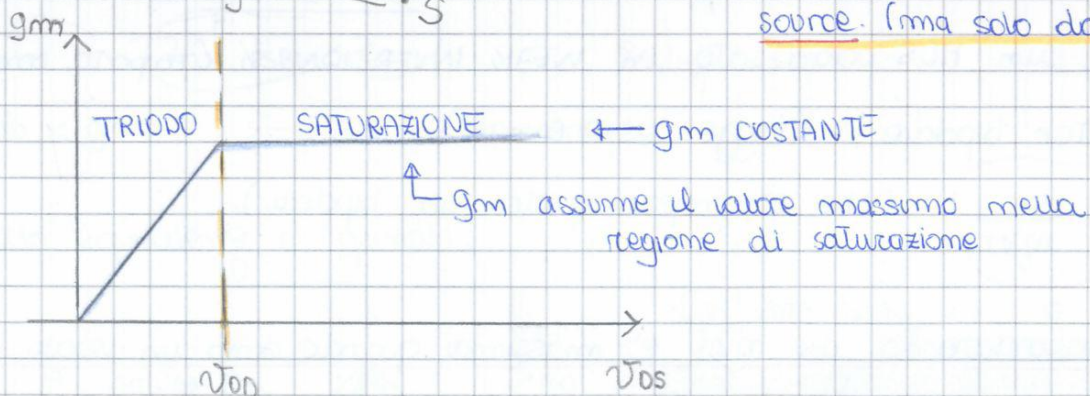 S
source. (ma solo da
gm
TRIODO SATURAZIONE ← gm COSTANTE
gm assume il valore massimo nella
regione di saturazione
VOD VDS